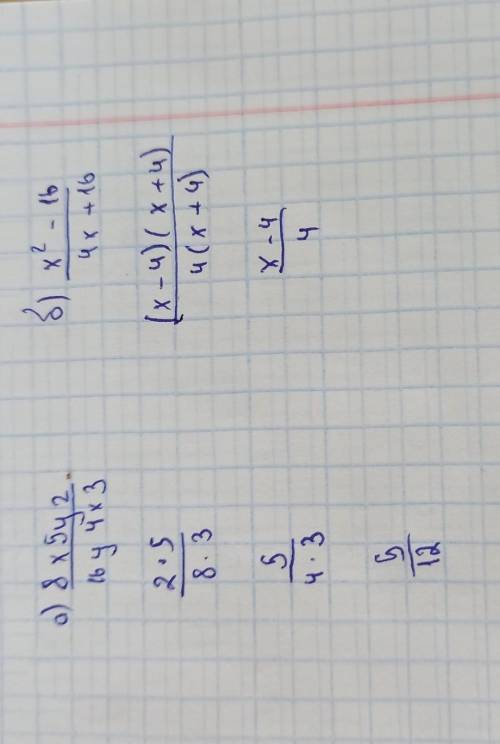 а) 8 x 5y 2
16 y 4 x 3
2 · 5
8 · 3
5
4 · 3
5
12
б) x² - 16
4x + 16
(x - 4)(x + 4)
4(x + 4)
x - 4
4